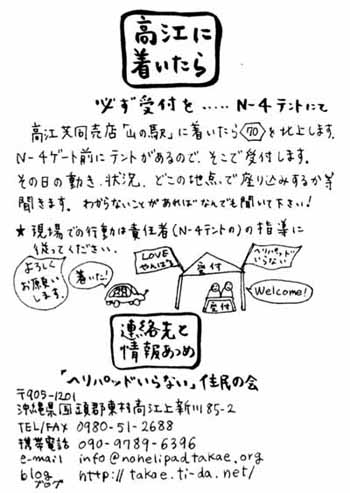 高江に
着いたら
必ず受付を‥‥‥N-4テントにて
高江共同売店「山の駅」に着いたら70を北上します。
N-4ゲート前にテントがあるので、そこで受付します。
その日の動き、状況、どこの地点で座り込みするか等
聞きます。わからないことがあればなんでも聞いて下さい！
★現場での行動は責任者(N-4テントの)の指導に
従ってください。
よろしく
お願い
します。
着いた！
LOVE
やんばる
受付
ヘリパッド
いらない
Welcome!
受付
連絡先と
情報あつめ
「ヘリパッドいらない」住民の会
〒905-1201
沖縄県国頭郡東村高江上新川85-2
TEL/FAX 0980-51-2688
携帯電話 090-9789-6396
e-mail info@nohelipadtakae.org
blog http://takae.ti-da.net/
ブログ